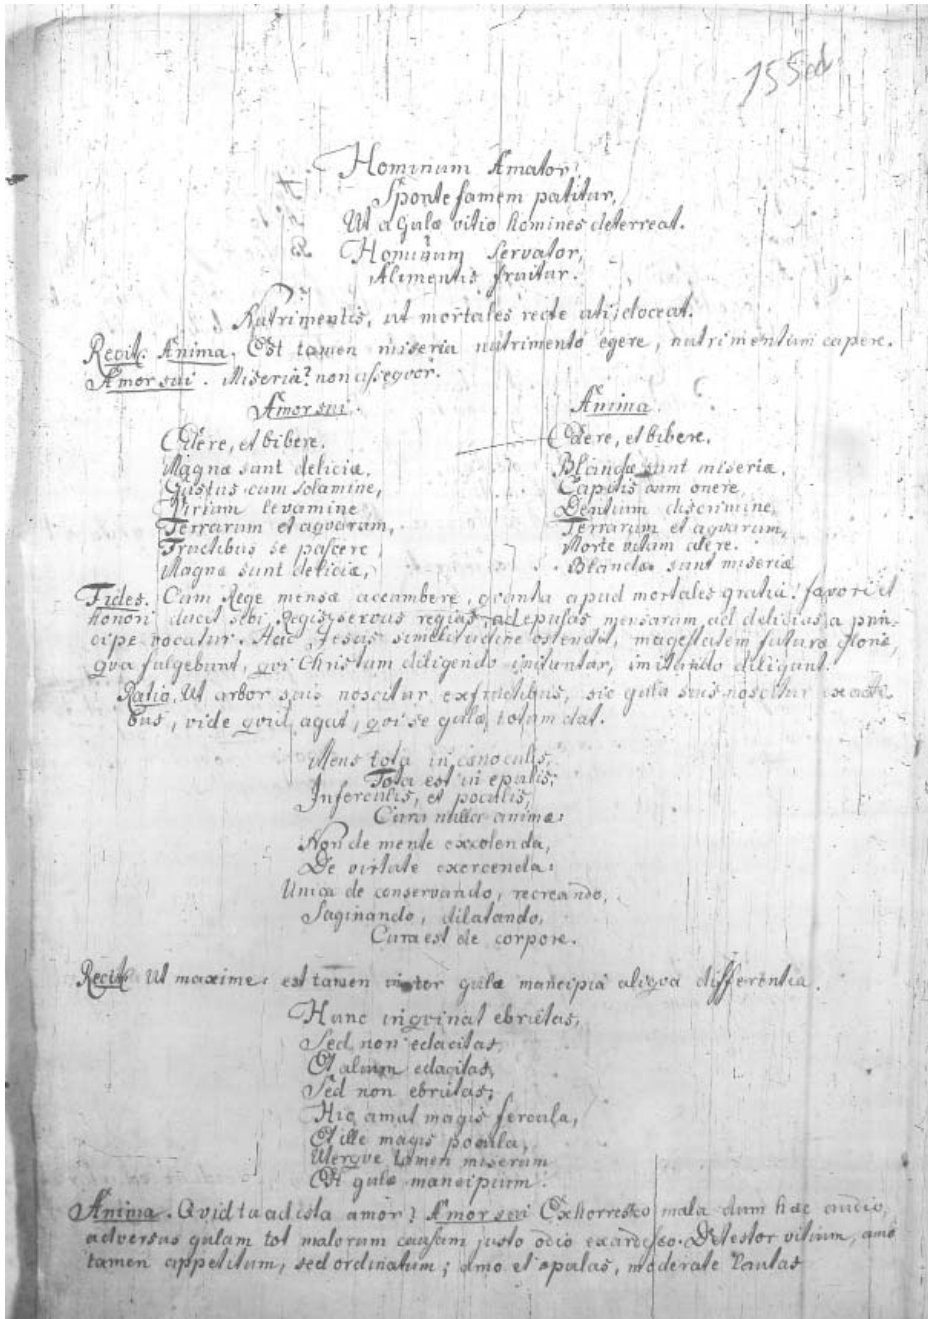 Hominum Amator,
Sponte famem patitur,
Ut a Gulæ vitio homines deterreat.
Hominum servator,
Alimentis fruitur.
Nutrimentis, ut mortales recte uti, doceat.
Recit. Anima. Est tamen miseria nutrimento egere, nutrimentum capere.
Amor sui. Miseria? non assequor.
Amor sui.
Edere, et bibere.
Magnæ sunt deliciæ.
Gustus cum solamine,
Virium levamine
Terrarum et aquarum,
Fructibus se pascere
Magnæ sunt deliciæ,
Anima.
Edere, et bibere.
Blandæ sunt miseriæ.
Capitis cum onere,
Dentium discrimine,
Terrarum et aquarum,
Morte vitam alere.
Blandæ sunt miseriæ
Fides. Cum Rege mensæ accumbere, quanta apud mortales gratia! favori et
honori ducit sibi, Regis servus regias, ad epulas mensarum, ad delicias a prin-
cipe vocatur. Hac Jesus similitudine ostendit, magestatem futuræ gloriæ,
qva fulgebunt, qvi Christum diligendo imituntur, imitando diligunt.
Ratio. Ut arbor suis noscitur ex fructibus, sic gula suis noscitur ex acti-
bus, vide qvid agat, qvi se gulæ totum dat.
Mens tota in cænoculis,
Tota est in epulis,
In ferculis, et poculis,
Cura nulla animæ:
Non de mente excolenda,
De virtute exercenda:
Unica de conservando, recreando,
Saginando, dilatando,
Cura est de corpore.
Recit. Ut maxime: est tamen inter gulæ mancipia aliqva differentia.
Hunc inqvinat ebrietas,
Sed non edacitas,
Et alium edacitas,
Sed non ebrietas;
Hic amat magis fercula,
Et ille magis pocula,
Uterqve tamen miserum
Est gulæ mancipium.
Anima. Qvid tu ad ista amor? Amor sui Exhorresco mala dum hæc audio,
adversus gulam tot malorum causam justo odio exardesco. Detestor vitium, amo
tamen appetitum, sed ordinatum; amo et epulas, moderate lautas